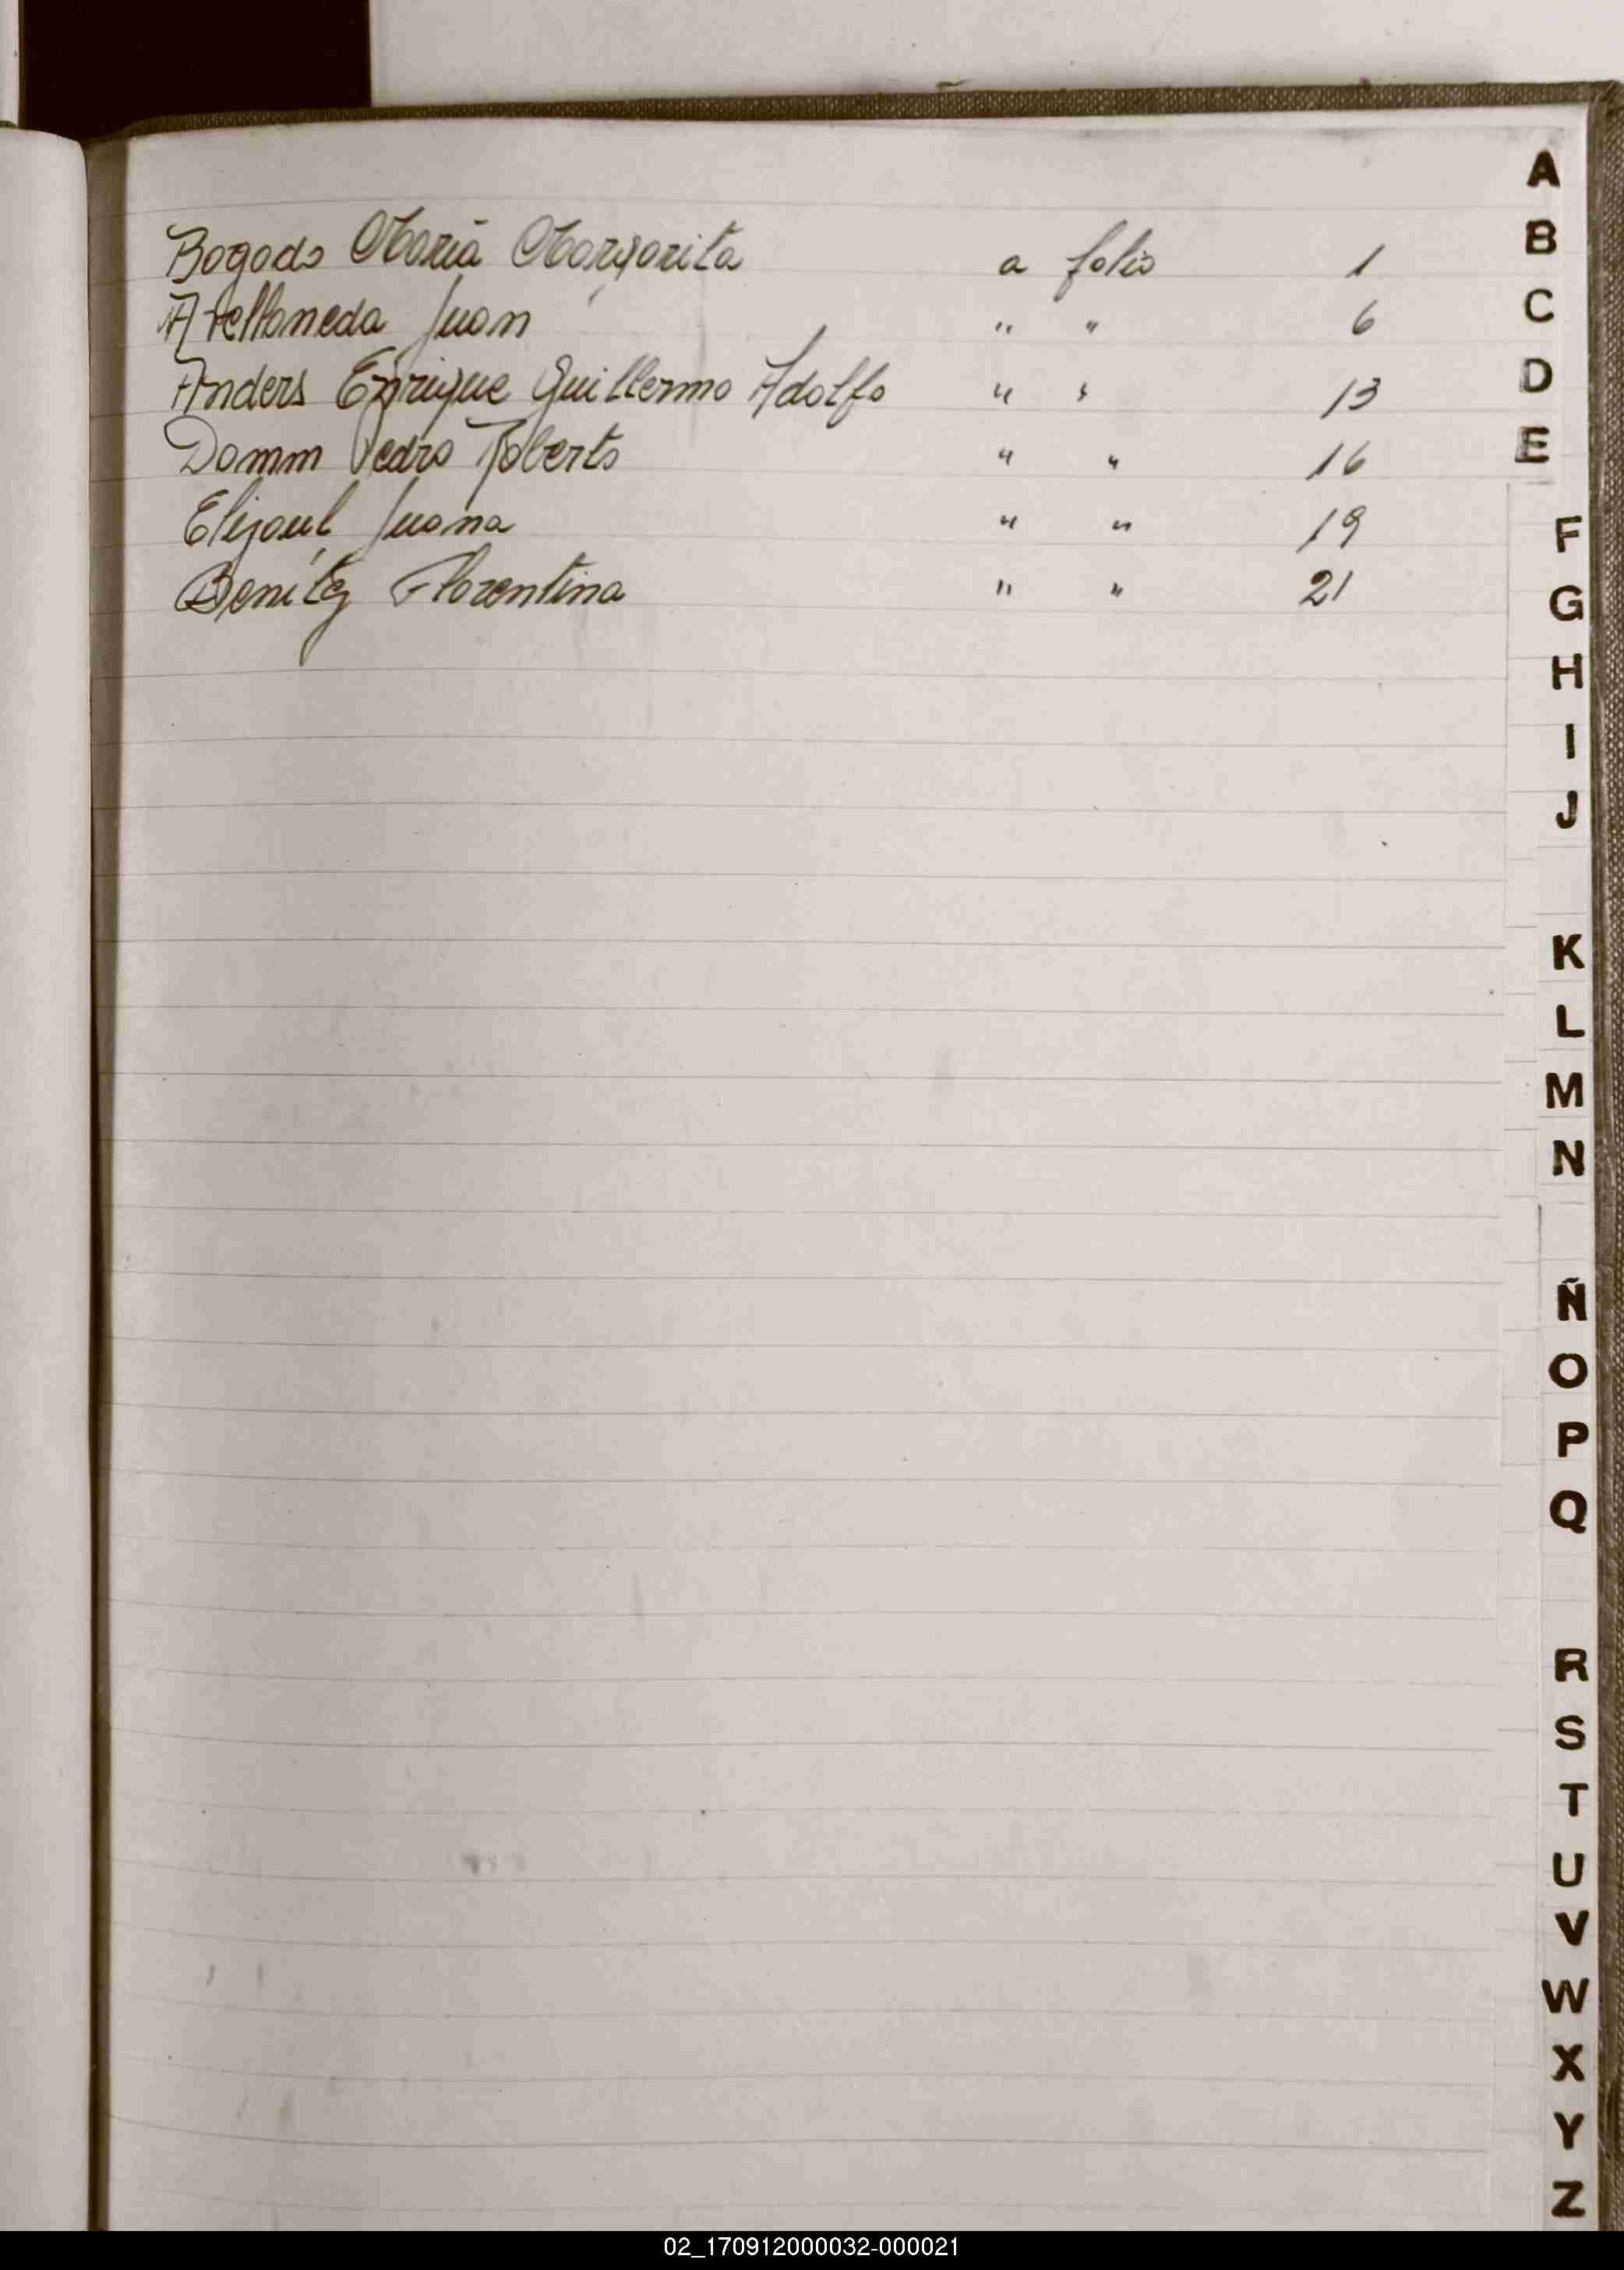 Bogado María Margarita a folio 1
Avellaneda Juan " " 6
Anders Enrique Guillermo Adolfo " " 13
Domm Pedro Roberto " " 16
Juana " " 19
Benítez Florentina " " 21
A
B
C
D
E
F
G
H
I
J
K
L
M
N
Ñ
O
P
Q
R
S
T
U
V
W
X
Y
Z
02_170912000032-000021